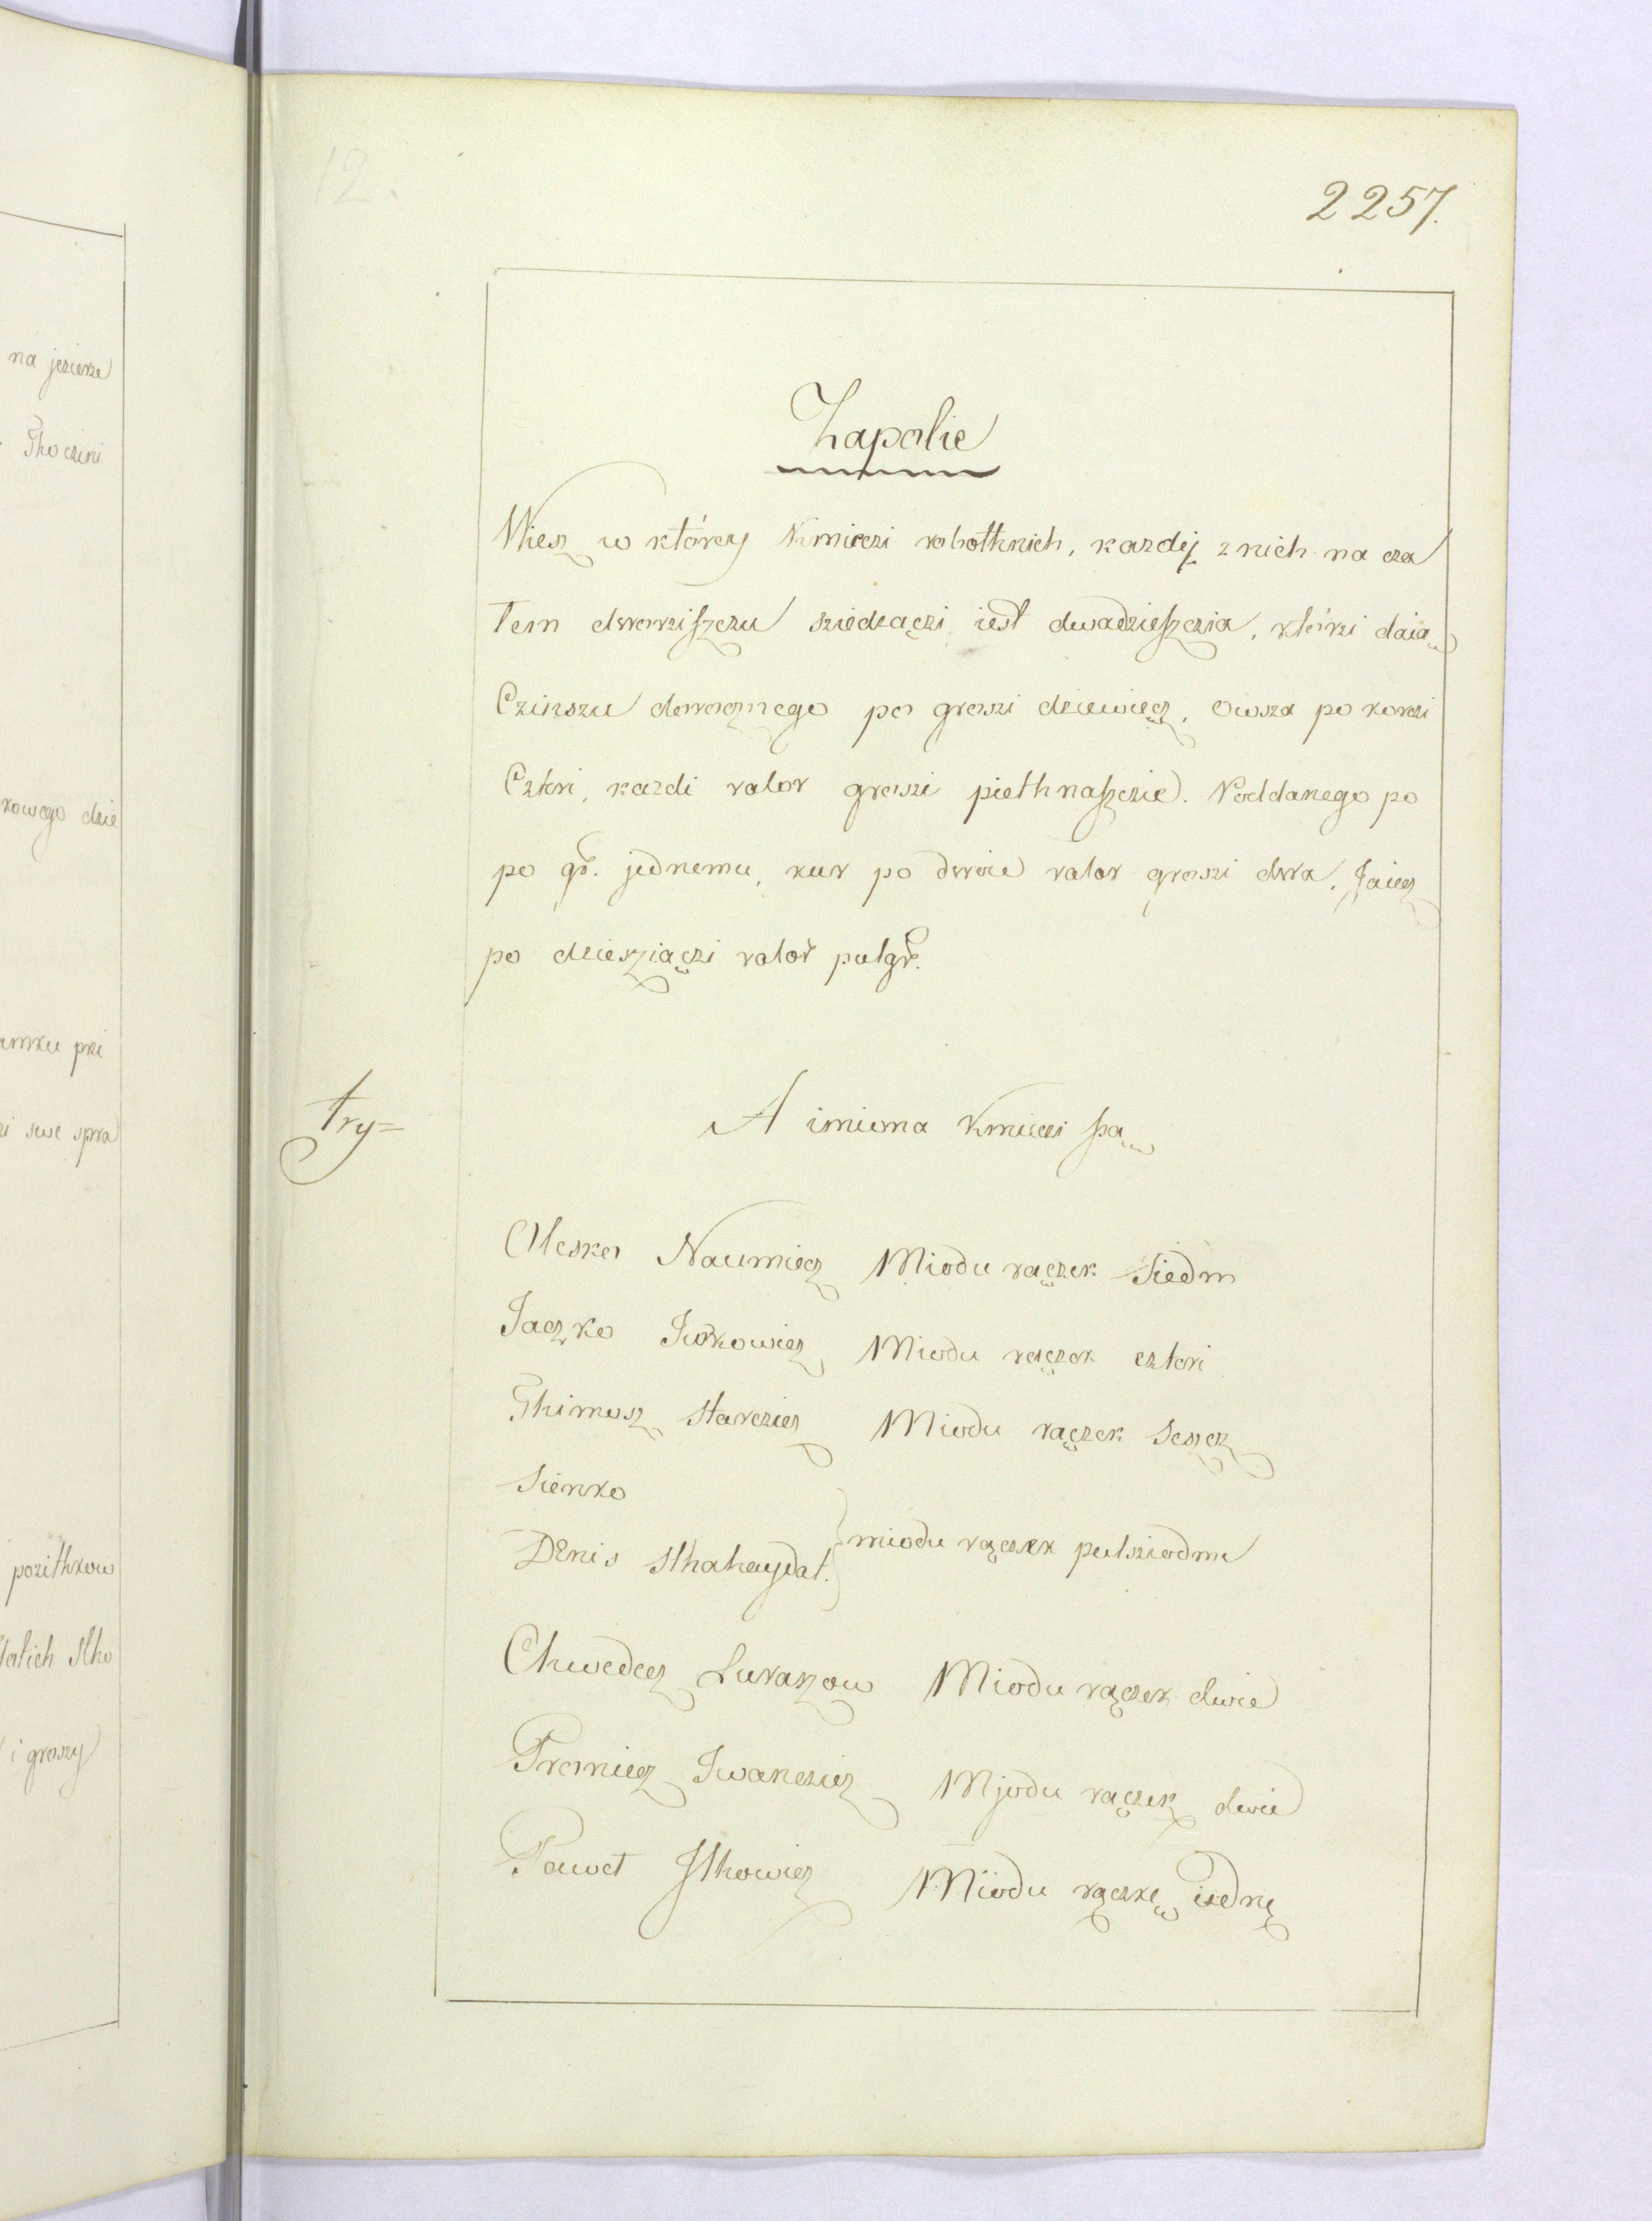 na jezierze
Thoczini
kowego dzie
amku pri
i swe spra
pozithkow
i groszy
12.
2257.
Zapolie
Wiesz w którey Kmieczi robothnich, kazdij z nich na cza
łem dworziszczu sziedzączi iest dwadzieszczia, którzi daią
Czinszu dorocznego po groszi dziewięcz, Owsza po korczi
Cztéri, kazdi valor groszi piethnaszczie. Poddanego po
po gr. jednemu, kur po dwoie valor groszi dwa, Jaiecz
po dziesziączi valor pułgr.
try=
A imiona Kmieczi są
Olesko Naumiecz Miodu rączek Siedm
Jaczko Jwkowicz Miodu rączek czteri
Thimosz Starczicz Miodu rączek seszcz
Sienko
Denis Sthahaydał. } miodu rączek pułsziodmi
Chwedecz Lukaszow Miodu rączek dwie
Proniecz Iwanczicz Mjodu rączek dwie
Paweł Jthowicz Miodu rączkę iednę